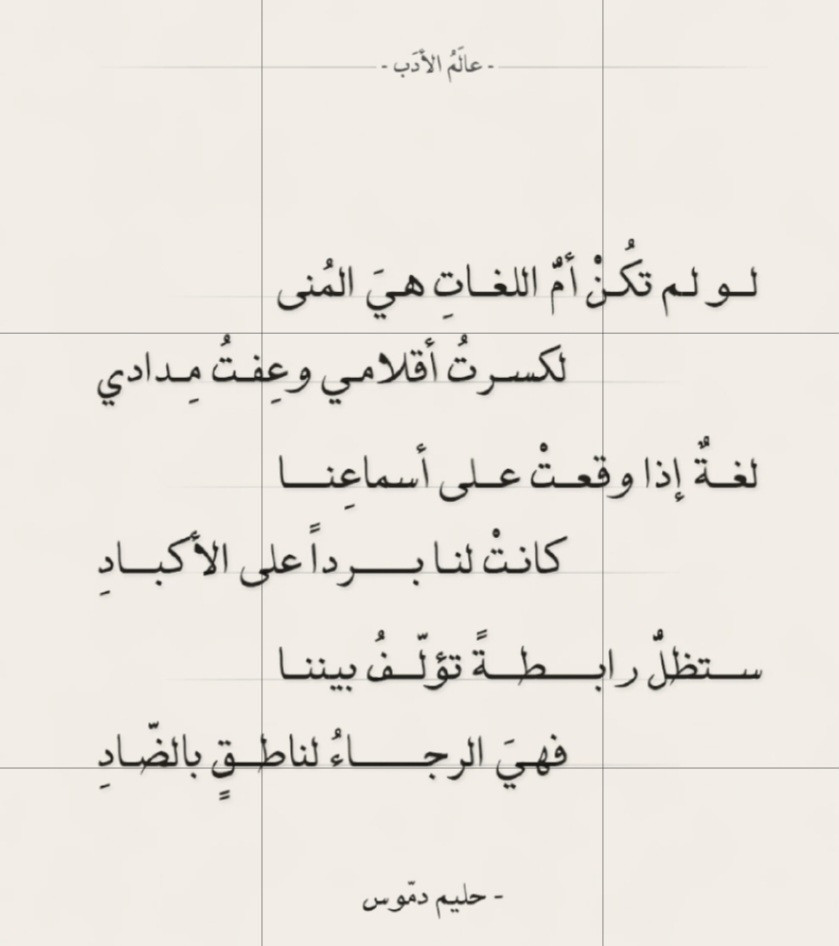 - عالَمُ الأدَب -
لو لم تكُنْ أمُّ اللغاتِ هيَ المُنى
لكسرتُ أقلامي وعِفتُ مِدادي
لغةٌ إذا وقعتْ على أسماعِنا
كانتْ لنا برداً على الأكبادِ
ستظلُّ رابطةً تؤلّفُ بيننا
فهيَ الرجاءُ لناطقٍ بالضّادِ
- حليم دمّوس